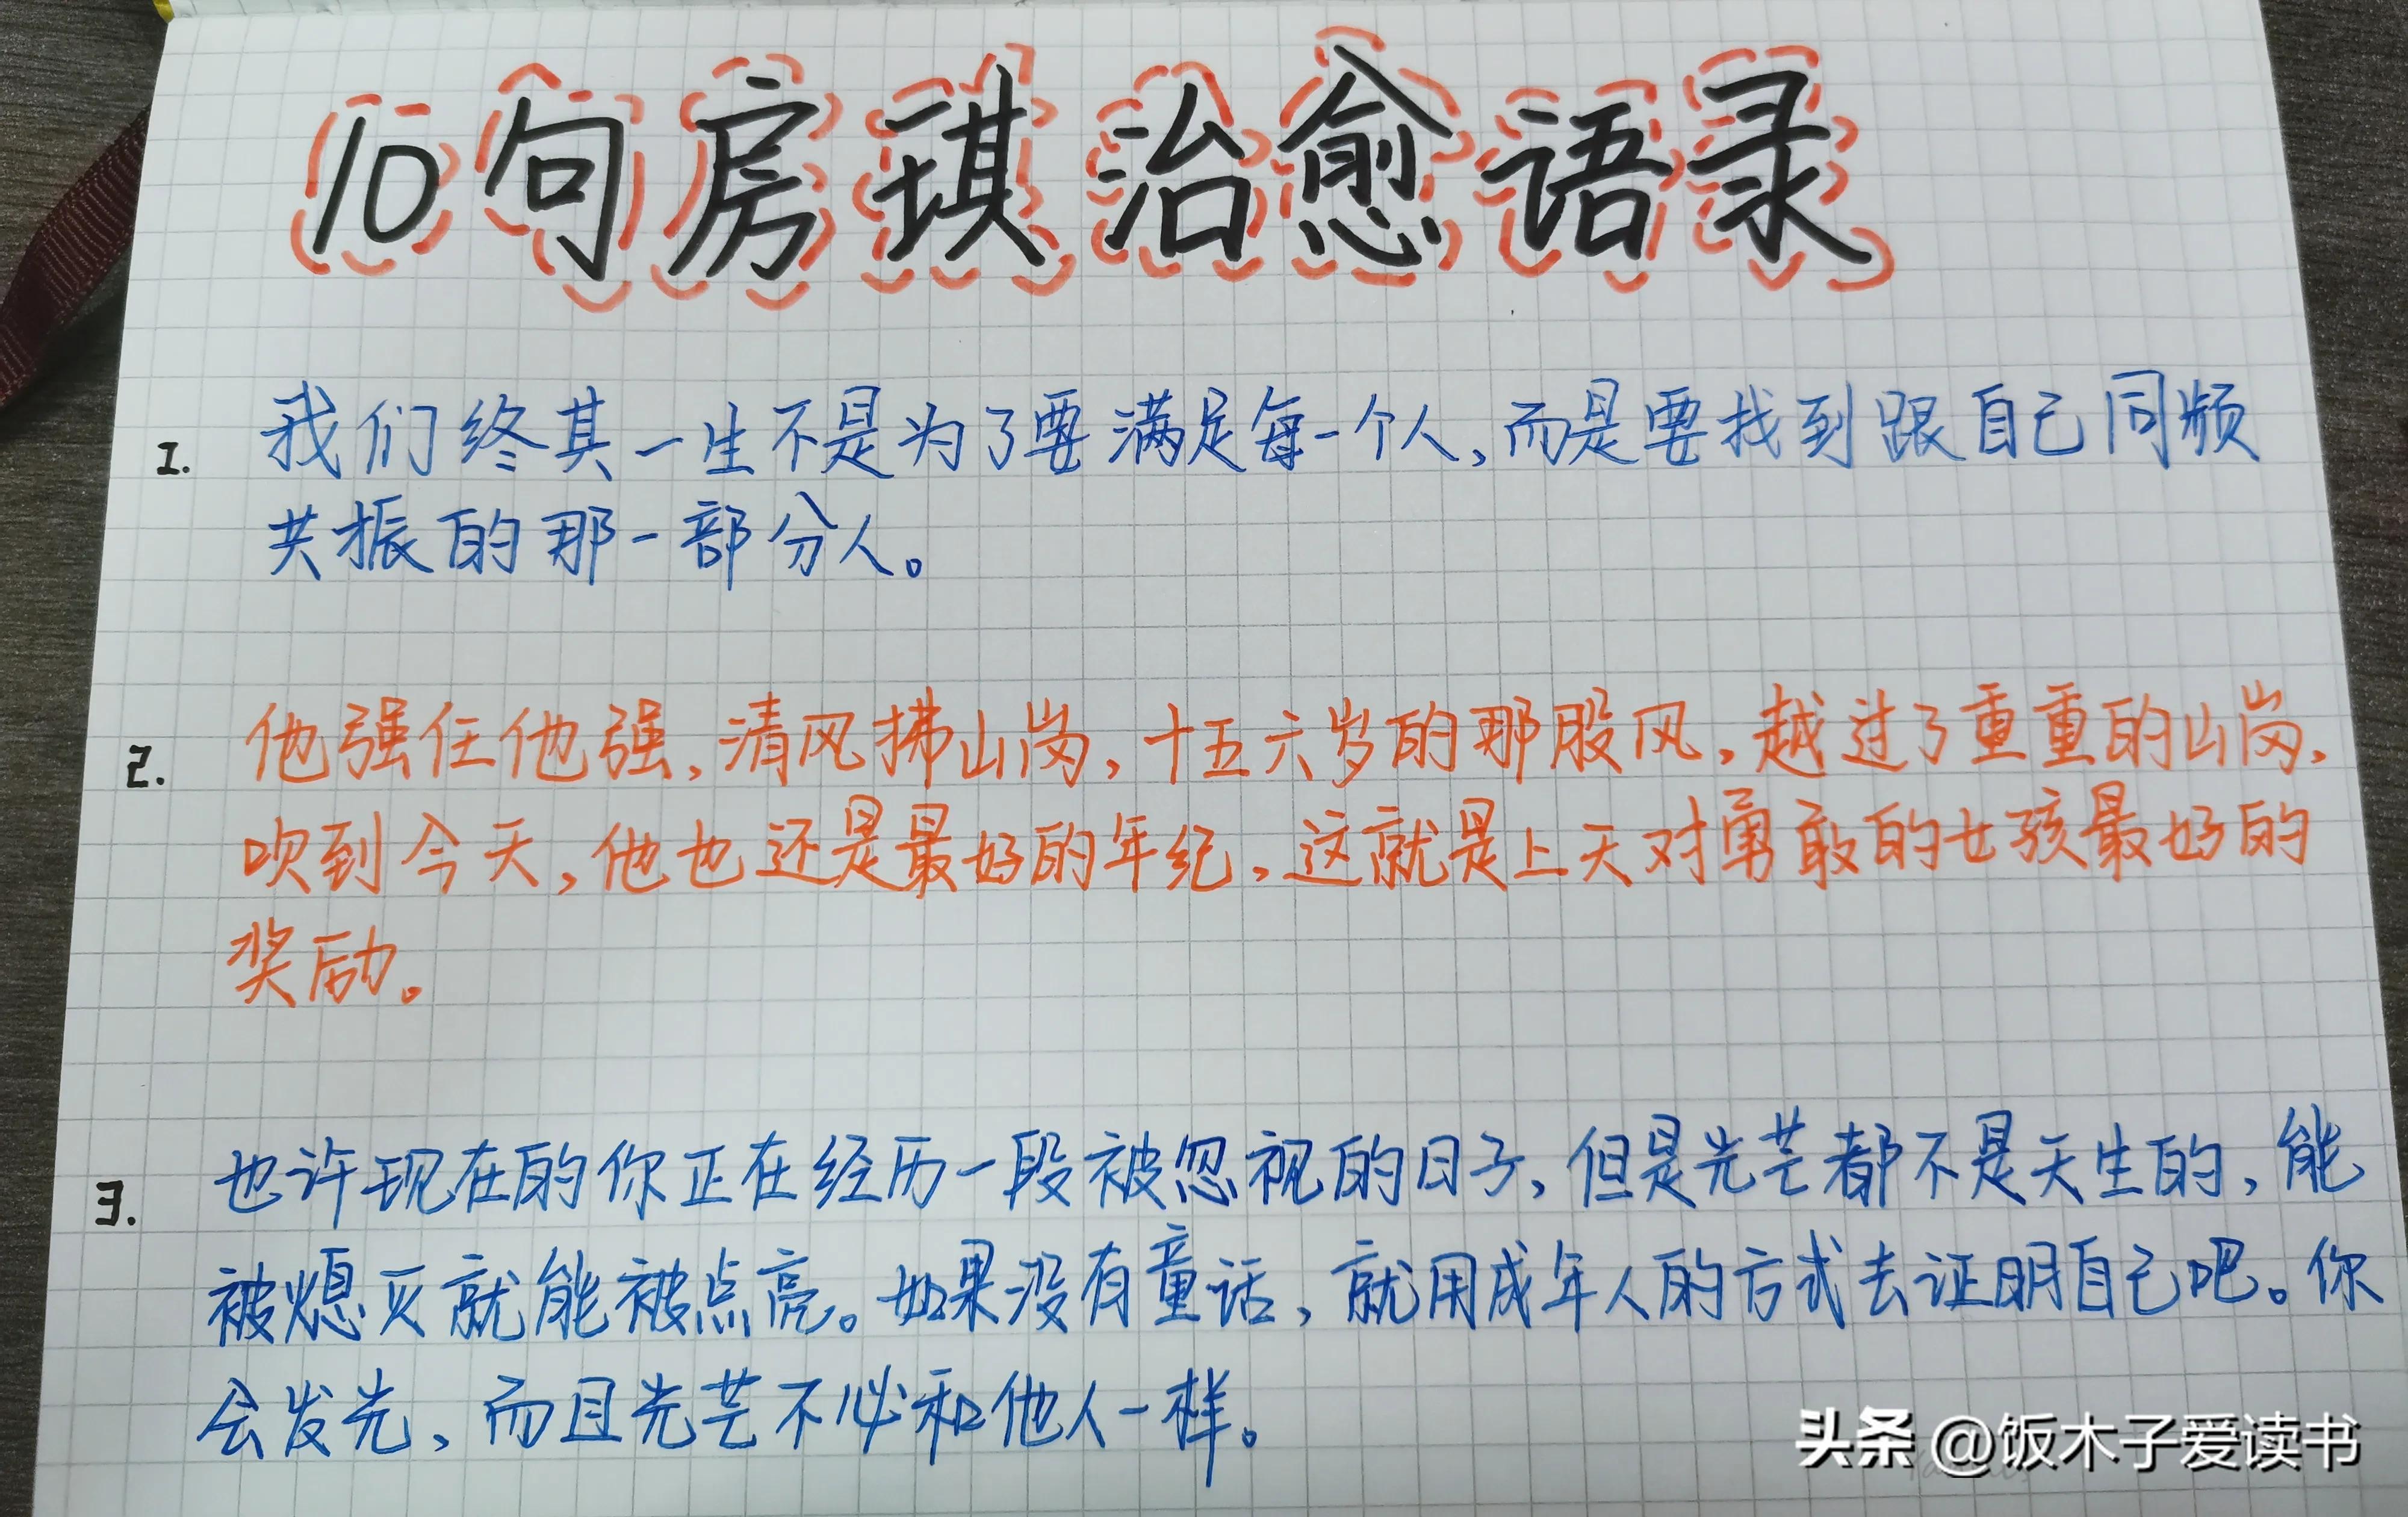 10句房琪治愈语录
1. 我们终其一生不是为了要满足每一个人,而是要找到跟自己同频
共振的那一部分人。
2. 他强任他强,清风拂山岗,十五六岁的那股风,越过了重重的山岗,
吹到今天,他也还是最好的年纪,这就是上天对勇敢的女孩最好的
奖励。
3. 也许现在的你正在经历一段被忽视的日子,但是光芒都不是天生的,能
被熄灭就能被点亮。如果没有童话,就用成年人的方式去证明自己吧。你
会发光,而且光芒不必和他人一样。
头条 @饭木子爱读书